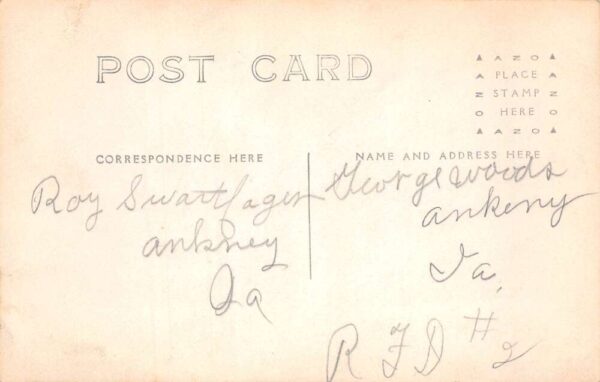 POST CARD
▲ A Z O ▲
▲ PLACE ▲
N STAMP N
O HERE O
▲ A Z O ▲
CORRESPONDENCE HERE
NAME AND ADDRESS HERE
Roy Swartfager
ankney
Ia
George woods
ankeny
Ia.
R F D #2